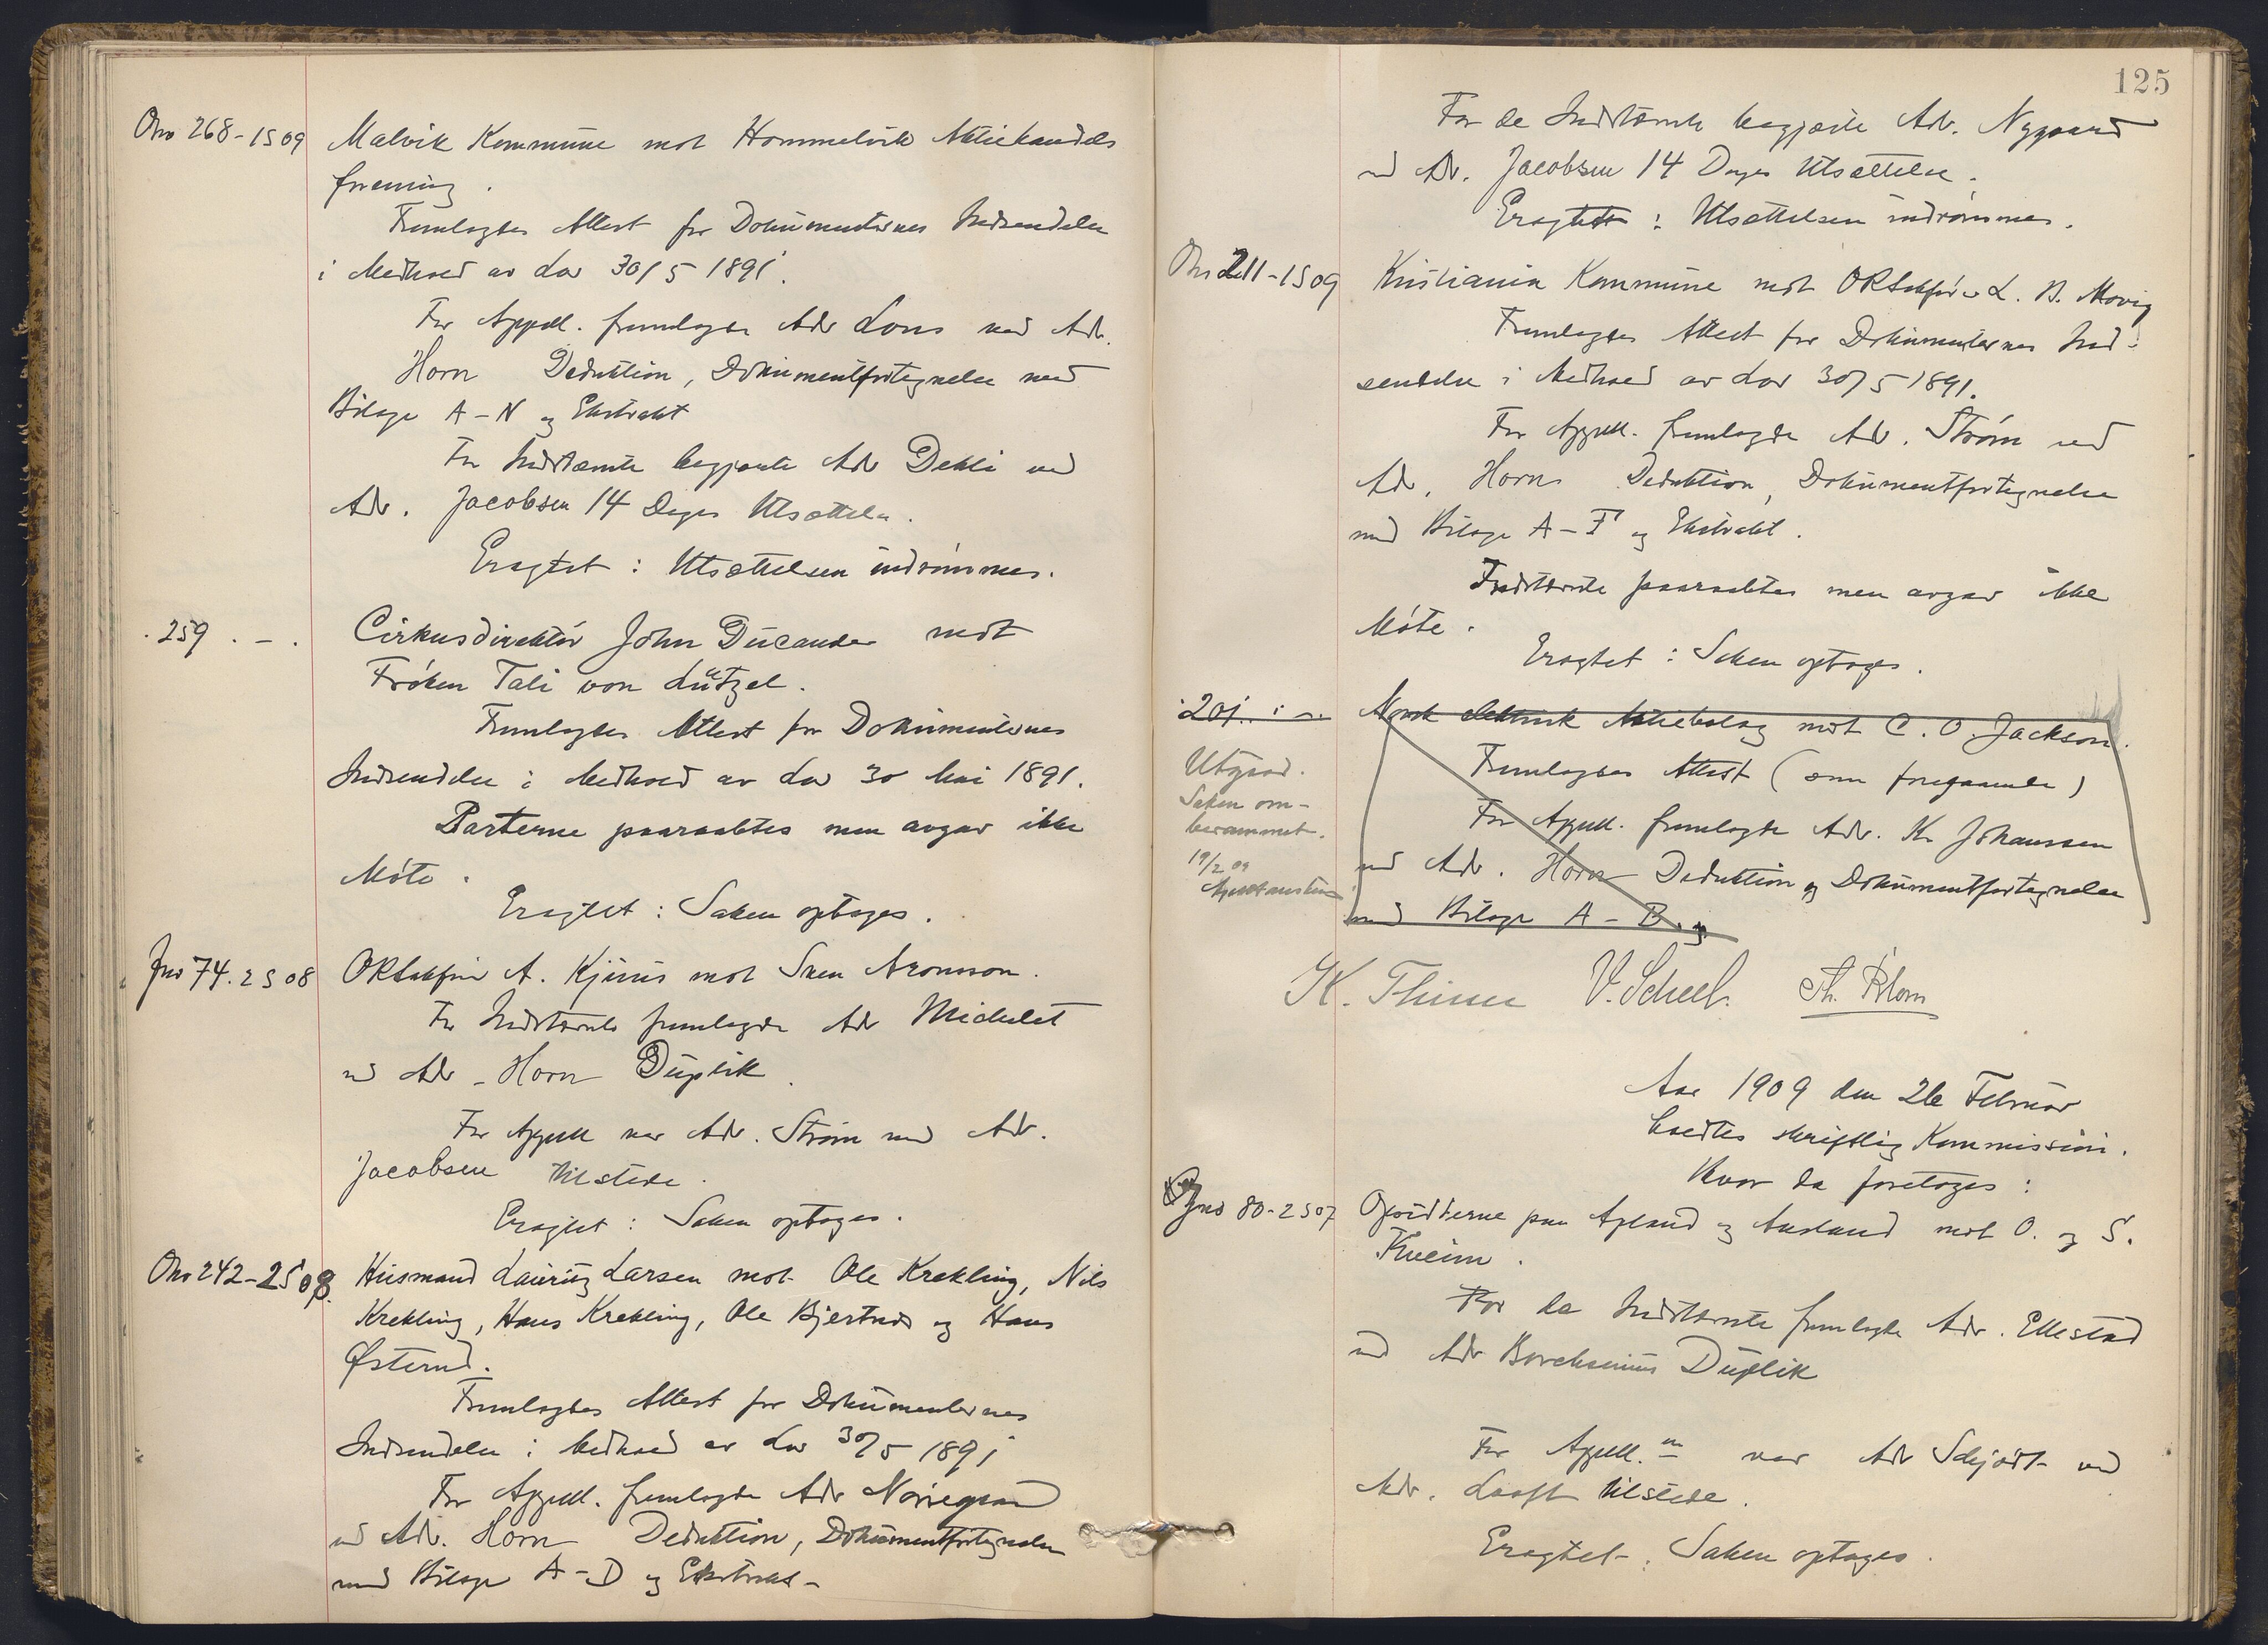 Ono 268-1S09 Malvik Kommune mot Hommelvik Aktiehandels
forening.
Fremlagdes Attest for Dokumenternes Indsendelse
i Medhold av Lov 30/5 1891.
For Appell. fremlagde Adv Lous ved Adv.
Horn Deduktion, Dokumentfortegnelse med
Bilage A-N og Ekstrakt
For Indstævnte begjærte Adv Dehli ved
Adv. Jacobsen 14 Dages Utsættelse.
Eragtet: Utsættelsen indrømmes.
259 - Cirkusdirektør John Ducander mot
Frøken Tali von Lützel.
Fremlagdes Attest for Dokumenternes
Indsendelse i Medhold av Lov 30 Mai 1891.
Parterne paaraabtes men avgav ikke
Møte.
Eragtet: Saken optages.
Jno 74. 2S08 ORSakfører A. Kjerus mot Sven Aronsson.
For Indstævnte fremlagde Adv Michelet
ved Adv Horn Duplik.
For Appell var Adv. Strøm ved Adv.
Jacobsen tilstede.
Eragtet: Saken optages.
Ono 242-2S08. Husmand Lauritz Larsen mot Ole Krekling, Nils
Krekling, Hans Krekling, Ole Bjertnæs og Hans
Østerud.
Fremlagdes Attest for Dokumenternes
Indsendelse i Medhold av Lov 30/5 1891
For Appell. fremlagde Adv Nørregaard
ved Adv. Horn Deduktion, Dokumentfortegnelse
med Bilage A-D og Ekstrakt-
125
For de Indstævnte begjærte Adv. Nygaard
ved Adv. Jacobsen 14 Dages Utsættelse.
Eragtet: Utsættelsen indrømmes.
Ono 211-1S09 Kristiania Kommune mot ORSakfører L. B. Movig
Fremlagdes Attest for Dokumenternes Ind-
sendelse i Medhold av Lov 30/5 1891.
For Appell. fremlagde Adv. Strøm ved
Adv. Horn Deduktion, Dokumentfortegnelse
med Bilage A-F og Ekstrakt.
Indstævnte paaraabtes men avgav ikke
Møte.
Eragtet: Saken optages.
201. - Norsk elektrisk Aktiebolag mot C. O. Jackson.
Utgaad.
Saken om-
berammet.
19/2 09
Fremlagdes Attest (som foregaaende)
For Appell. fremlagde Adv. Kr Johanssen
ved Adv. Horn Deduktion og Dokumentfortegnelse
med Bilage A-B. og
K. Thinn V. Scheel. Th. Blom
Aar 1909 den 26 Februar
holdtes skriftlig Kommission.
Hvor da foretoges:
Jno 80-2S07 Opsidderne paa Apland og Ausland mot O. og S.
Kveim.
For de Indstævnte fremlagde Adv. Ellestad
ved Adv Borchsenius Duplik
For Appell.ne var Adv Schjødt ved
Adv. Looft tilstede.
Eragtet: Saken optages.